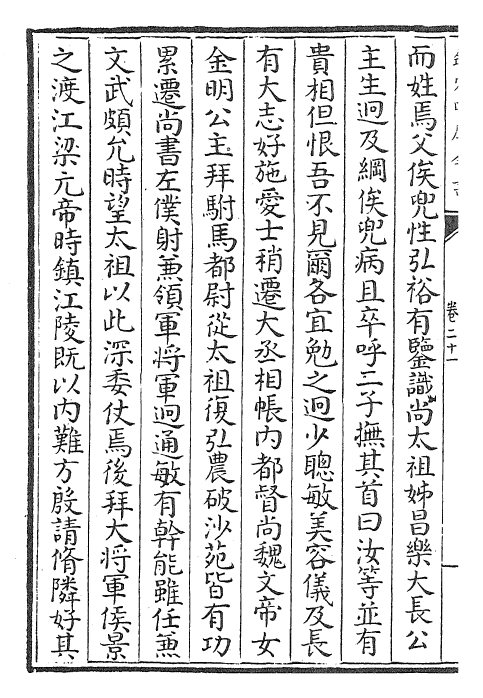 卷二十一
而姓焉父俟兜性弘裕有鑒識尚太祖姊昌樂大長公
主生迥及綱俟兜病且卒呼二子撫其首曰汝等並有
貴相但恨吾不見爾各宜勉之迥少聰敏美容儀及長
有大志好施愛士稍遷大丞相帳内都督尚魏文帝女
金明公主拜駙馬都尉從太祖復弘農破沙苑皆有功
累遷尚書左僕射兼領軍將軍迥通敏有幹能雖任兼
文武頗允時望太祖以此深委仗焉後拜大將軍侯景
之渡江梁元帝時鎮江陵既以内難方殷請脩隣好其